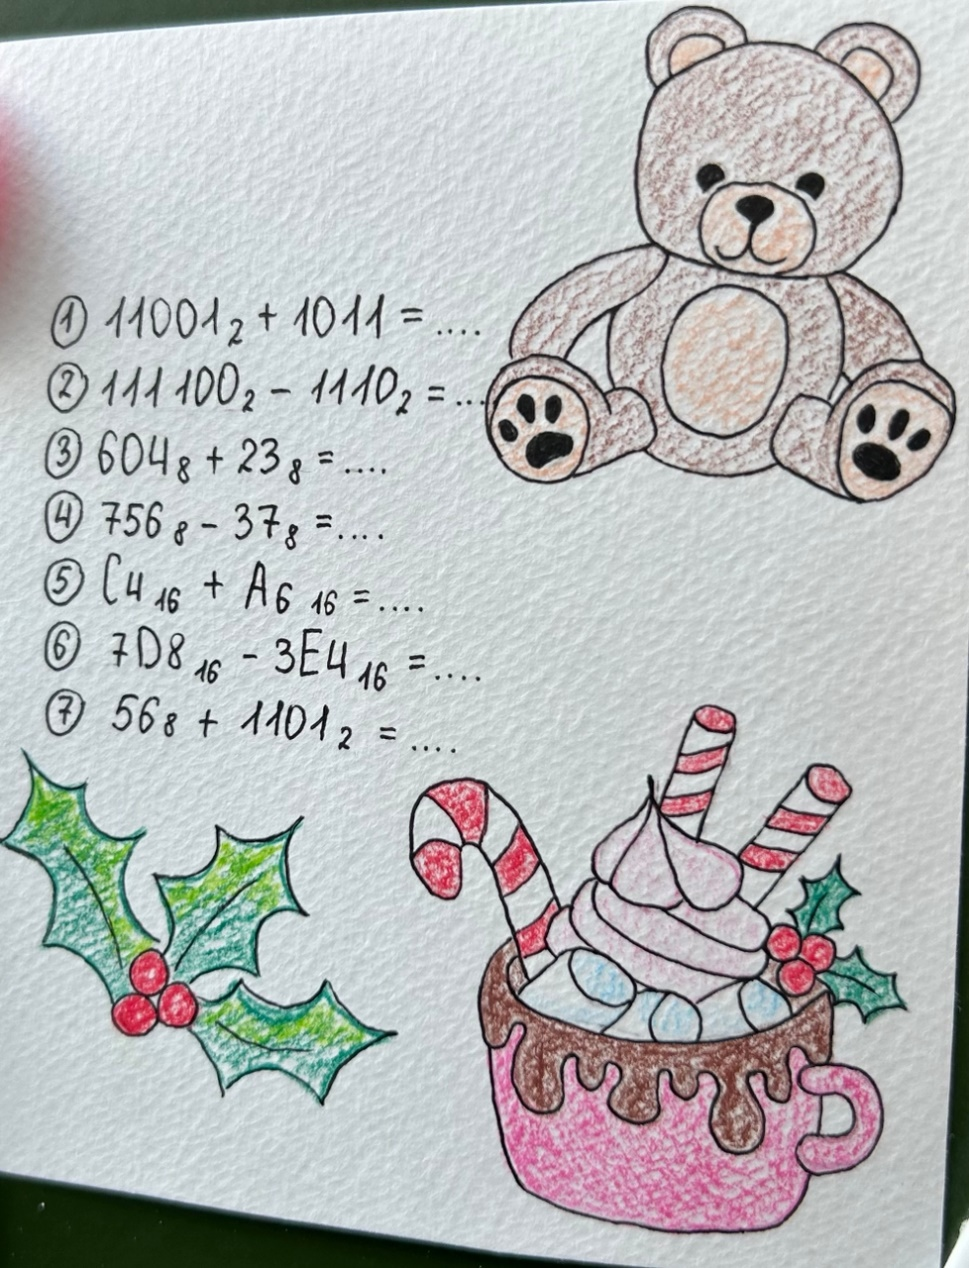 ① 11001₂ + 1011 = ....
② 111100₂ - 1110₂ = ...
③ 604₈ + 23₈ = ....
④ 756₈ - 37₈ = ....
⑤ C4₁₆ + A6₁₆ = ....
⑥ 7D8₁₆ - 3E4₁₆ = ....
⑦ 56₈ + 1101₂ = ....